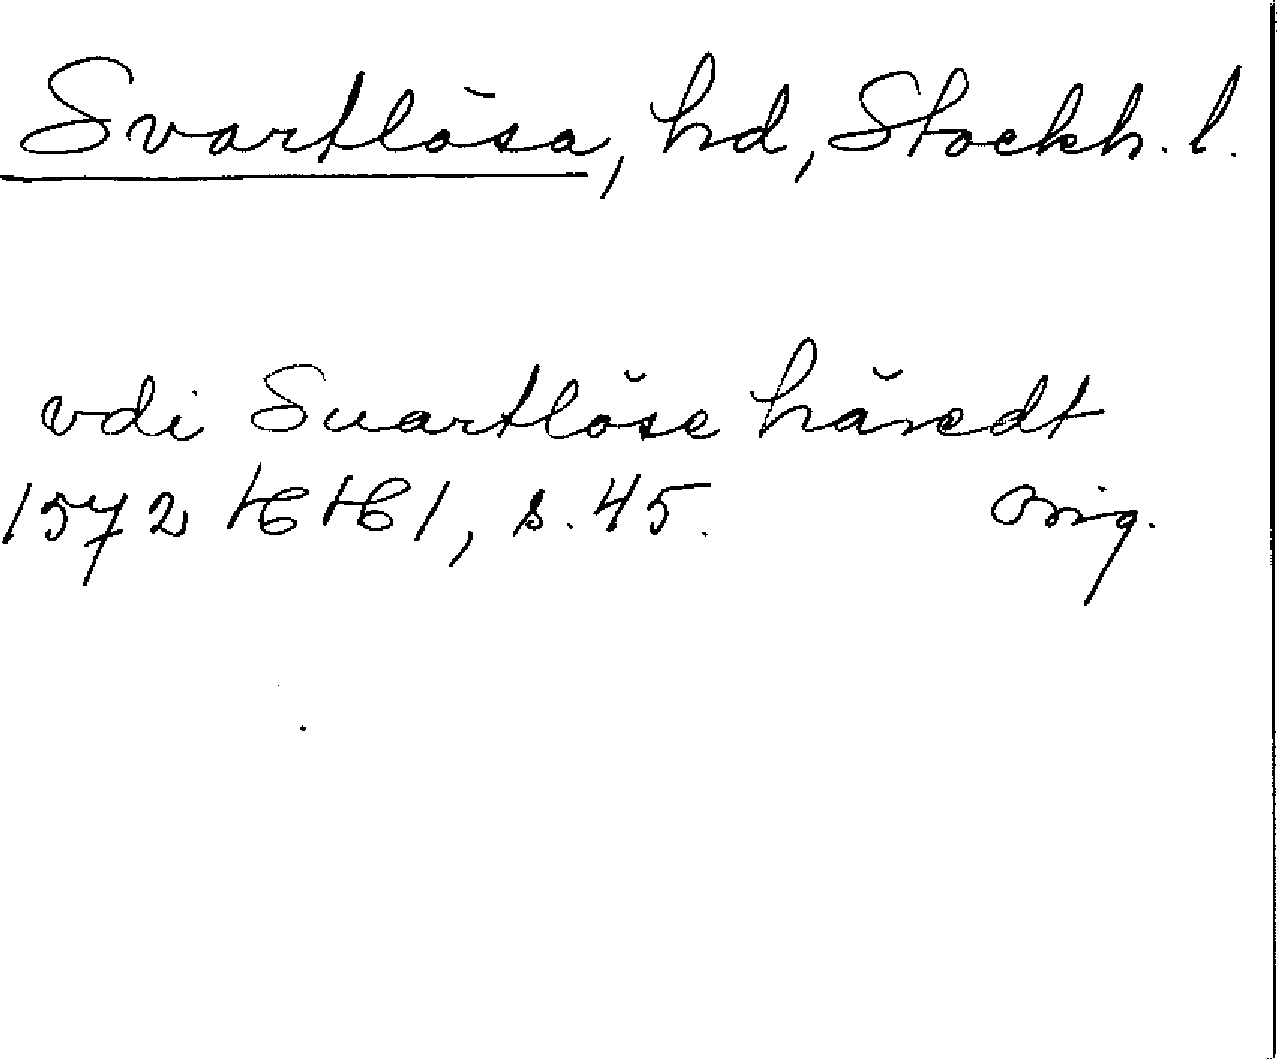 Svartlösa, hd, Stockh. l.
vdi Suartlöse häredt
1572 HH 1, s. 45. Orig.